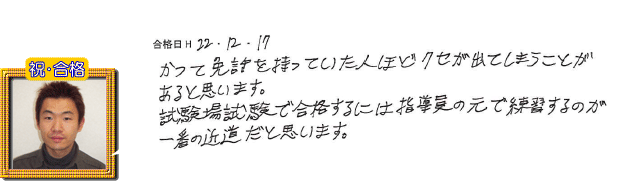 合格日 H 22・12・17
祝・合格
かつて免許を持っていた人ほどクセが出てしまうことが
あると思います。
試験場試験で合格するには指導員の元で練習するのが
一番の近道だと思います。